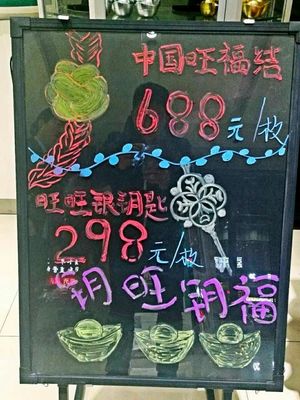 中国旺福结
688元/枚
旺旺银钥匙
298元/枚
钥旺钥福